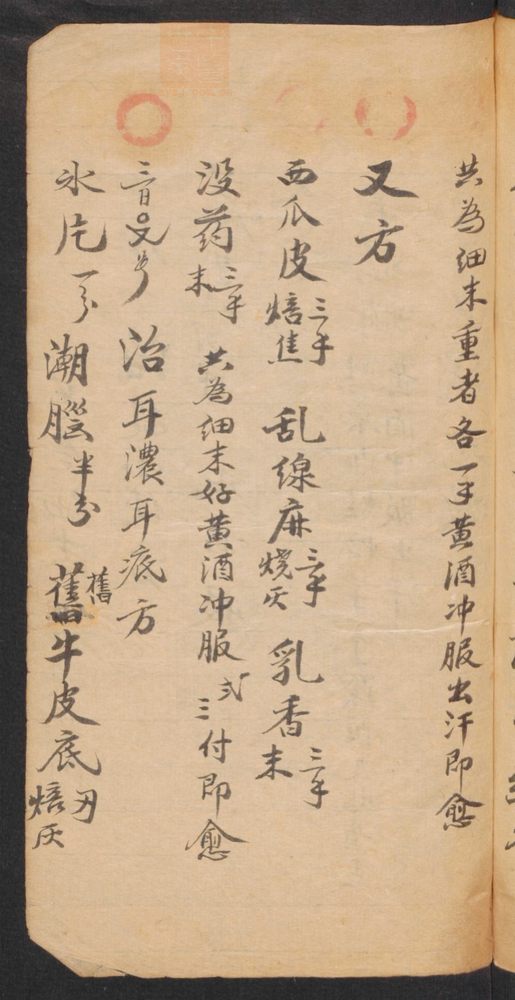 共為細末重者各一手黃酒冲服出汗即愈
又方
西瓜皮焙焦三手 乱線麻烧灰三手 乳香末三手
没药末三手 共為細末好黃酒冲服弍三付即愈
治耳濃耳底方
氷片一分 潮腦半分 舊舊牛皮底焙灰